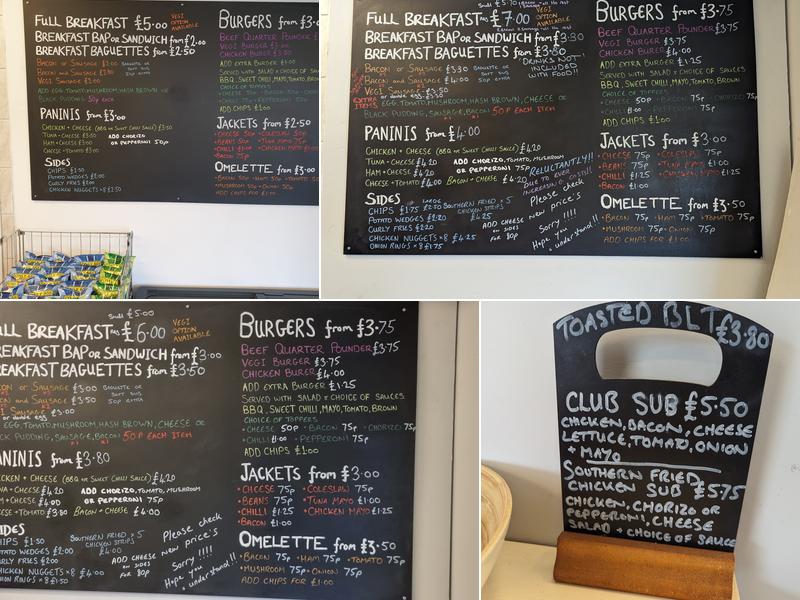 FULL BREAKFAST £5.00
VEGI OPTION AVAILABLE
BREAKFAST BAP OR SANDWICH from £2.00
BREAKFAST BAGUETTES from £2.50
BACON OR SAUSAGE £2.00
BACON AND SAUSAGE
VEGI SAUSAGE
BLACK PUDDING 50p EACH
PANINIS from £3.00
CHICKEN + CHEESE (BBQ OR SWEET CHILI SAUCE) £3.50
TUNA + CHEESE £3.50
HAM + CHEESE £3.00
ADD CHORIZO OR PEPPERONI 50p
SIDES
CHIPS £1.50
POTATO WEDGES £2.00
CURLY FRIES £2.00
CHICKEN NUGGETS
BURGERS from £3
BEEF QUARTER POUNDER
VEGI BURGER
ADD EXTRA BURGER
SERVED WITH SALAD + CHOICE OF
BBQ, SWEET CHILI, MAYO, TOMATO,
CHOICE OF TOPPERS
ADD CHIPS £1.00
JACKETS from £2.50
OMELETTE from £3.00
ADD CHIPS FOR £1.00
FULL BREAKFAST £7.00
VEGI OPTION AVAILABLE
BREAKFAST BAP OR SANDWICH from £3.30
BREAKFAST BAGUETTES from £3.80
BACON OR SAUSAGE £3.30
BACON AND SAUSAGE £4.00
BAGUETTE OR SOFT SUB 50p EXTRA
DRINKS NOT INCLUDED WITH FOOD!!
VEGI SAUSAGE
EXTRA ITEMS
EGG, TOMATO, MUSHROOM, HASH BROWN, CHEESE OR
BLACK PUDDING, SAUSAGE, BACON 50P EACH ITEM
PANINIS from £4.00
CHICKEN + CHEESE (BBQ OR SWEET CHILI SAUCE) £4.20
TUNA + CHEESE £4.20
HAM + CHEESE £4.20
ADD CHORIZO, TOMATO, MUSHROOM OR PEPPERONI 75p
CHEESE + TOMATO £4.00 BACON + CHEESE £4.20
RELUCTANTLY!!
DUE TO EVER INCREASING COSTS!!
Please check new price's
Sorry !!!!
Hope you understand!!
SIDES
CHIPS £1.75 LARGE £2.50
POTATO WEDGES £2.20
CURLY FRIES £2.20
CHICKEN NUGGETS x 8 £4.25
ONION RINGS x 8 £1.75
SOUTHERN FRIED x 5
CHICKEN STRIPS
£4.25
ADD CHEESE ON SIDES FOR 80p
BURGERS from £3.75
BEEF QUARTER POUNDER £3.75
VEGI BURGER £3.75
CHICKEN BURGER £4.00
ADD EXTRA BURGER £1.25
SERVED WITH SALAD + CHOICE OF SAUCES
BBQ, SWEET CHILLI, MAYO, TOMATO, BROWN
CHOICE OF TOPPERS
• CHEESE 50p • BACON 75p • CHORIZO 75p
• CHILLI £1.00 • PEPPERONI 75p
ADD CHIPS £1.00
JACKETS from £3.00
• CHEESE 75p • COLESLAW 75p
• BEANS 75p • TUNA MAYO £1.00
• CHILLI £1.25 • CHICKEN MAYO £1.25
• BACON £1.00
OMELETTE from £3.50
• BACON 75p • HAM 75p • TOMATO 75p
• MUSHROOM 75p • ONION 75p
ADD CHIPS FOR £1.00
Small £5.00
ULL BREAKFAST £6.00
VEGI OPTION AVAILABLE
REAKFAST BAP OR SANDWICH from £3.00
REAKFAST BAGUETTES from £3.50
CON OR SAUSAGE £3.00
CON AND SAUSAGE £3.50
BAGUETTE OR SOFT SUB 50p EXTRA
SAUSAGE £3.00
or double egg
EGG, TOMATO, MUSHROOM, HASH BROWN, CHEESE OR
CK PUDDING, SAUSAGE, BACON 50P EACH ITEM
ANINIS from £3.80
ICKEN + CHEESE (BBQ OR SWEET CHILI SAUCE) £4.20
NA + CHEESE £4.20
M + CHEESE £4.00
ADD CHORIZO, TOMATO, MUSHROOM OR PEPPERONI 75p
EESE + TOMATO £3.80 BACON + CHEESE £4.00
IDES
IPS £1.50
OTATO WEDGES £2.00
URLY FRIES £2.00
CKEN NUGGETS x 8 £4.00
NION RINGS x 8 £1.50
SOUTHERN FRIED x 5
CHICKEN STRIPS
£4.00
ADD CHEESE ON SIDES FOR 80p
Please check new price's
Sorry !!!!
Hope you understand!!
BURGERS from £3.75
BEEF QUARTER POUNDER £3.75
VEGI BURGER £3.75
CHICKEN BURGER £4.00
ADD EXTRA BURGER £1.25
SERVED WITH SALAD + CHOICE OF SAUCES
BBQ, SWEET CHILLI, MAYO, TOMATO, BROWN
CHOICE OF TOPPERS
• CHEESE 50p • BACON 75p • CHORIZO 75p
• CHILLI £1.00 • PEPPERONI 75p
ADD CHIPS £1.00
JACKETS from £3.00
• CHEESE 75p • COLESLAW 75p
• BEANS 75p • TUNA MAYO £1.00
• CHILLI £1.25 • CHICKEN MAYO £1.25
• BACON £1.00
OMELETTE from £3.50
• BACON 75p • HAM 75p • TOMATO 75p
• MUSHROOM 75p • ONION 75p
ADD CHIPS FOR £1.00
TOASTED BLT £3.80
CLUB SUB £5.50
CHICKEN, BACON, CHEESE
LETTUCE, TOMATO, ONION
+ MAYO
SOUTHERN FRIED
CHICKEN SUB £5.75
CHICKEN, CHORIZO OR
PEPPERONI, CHEESE
SALAD + CHOICE OF SAUCE